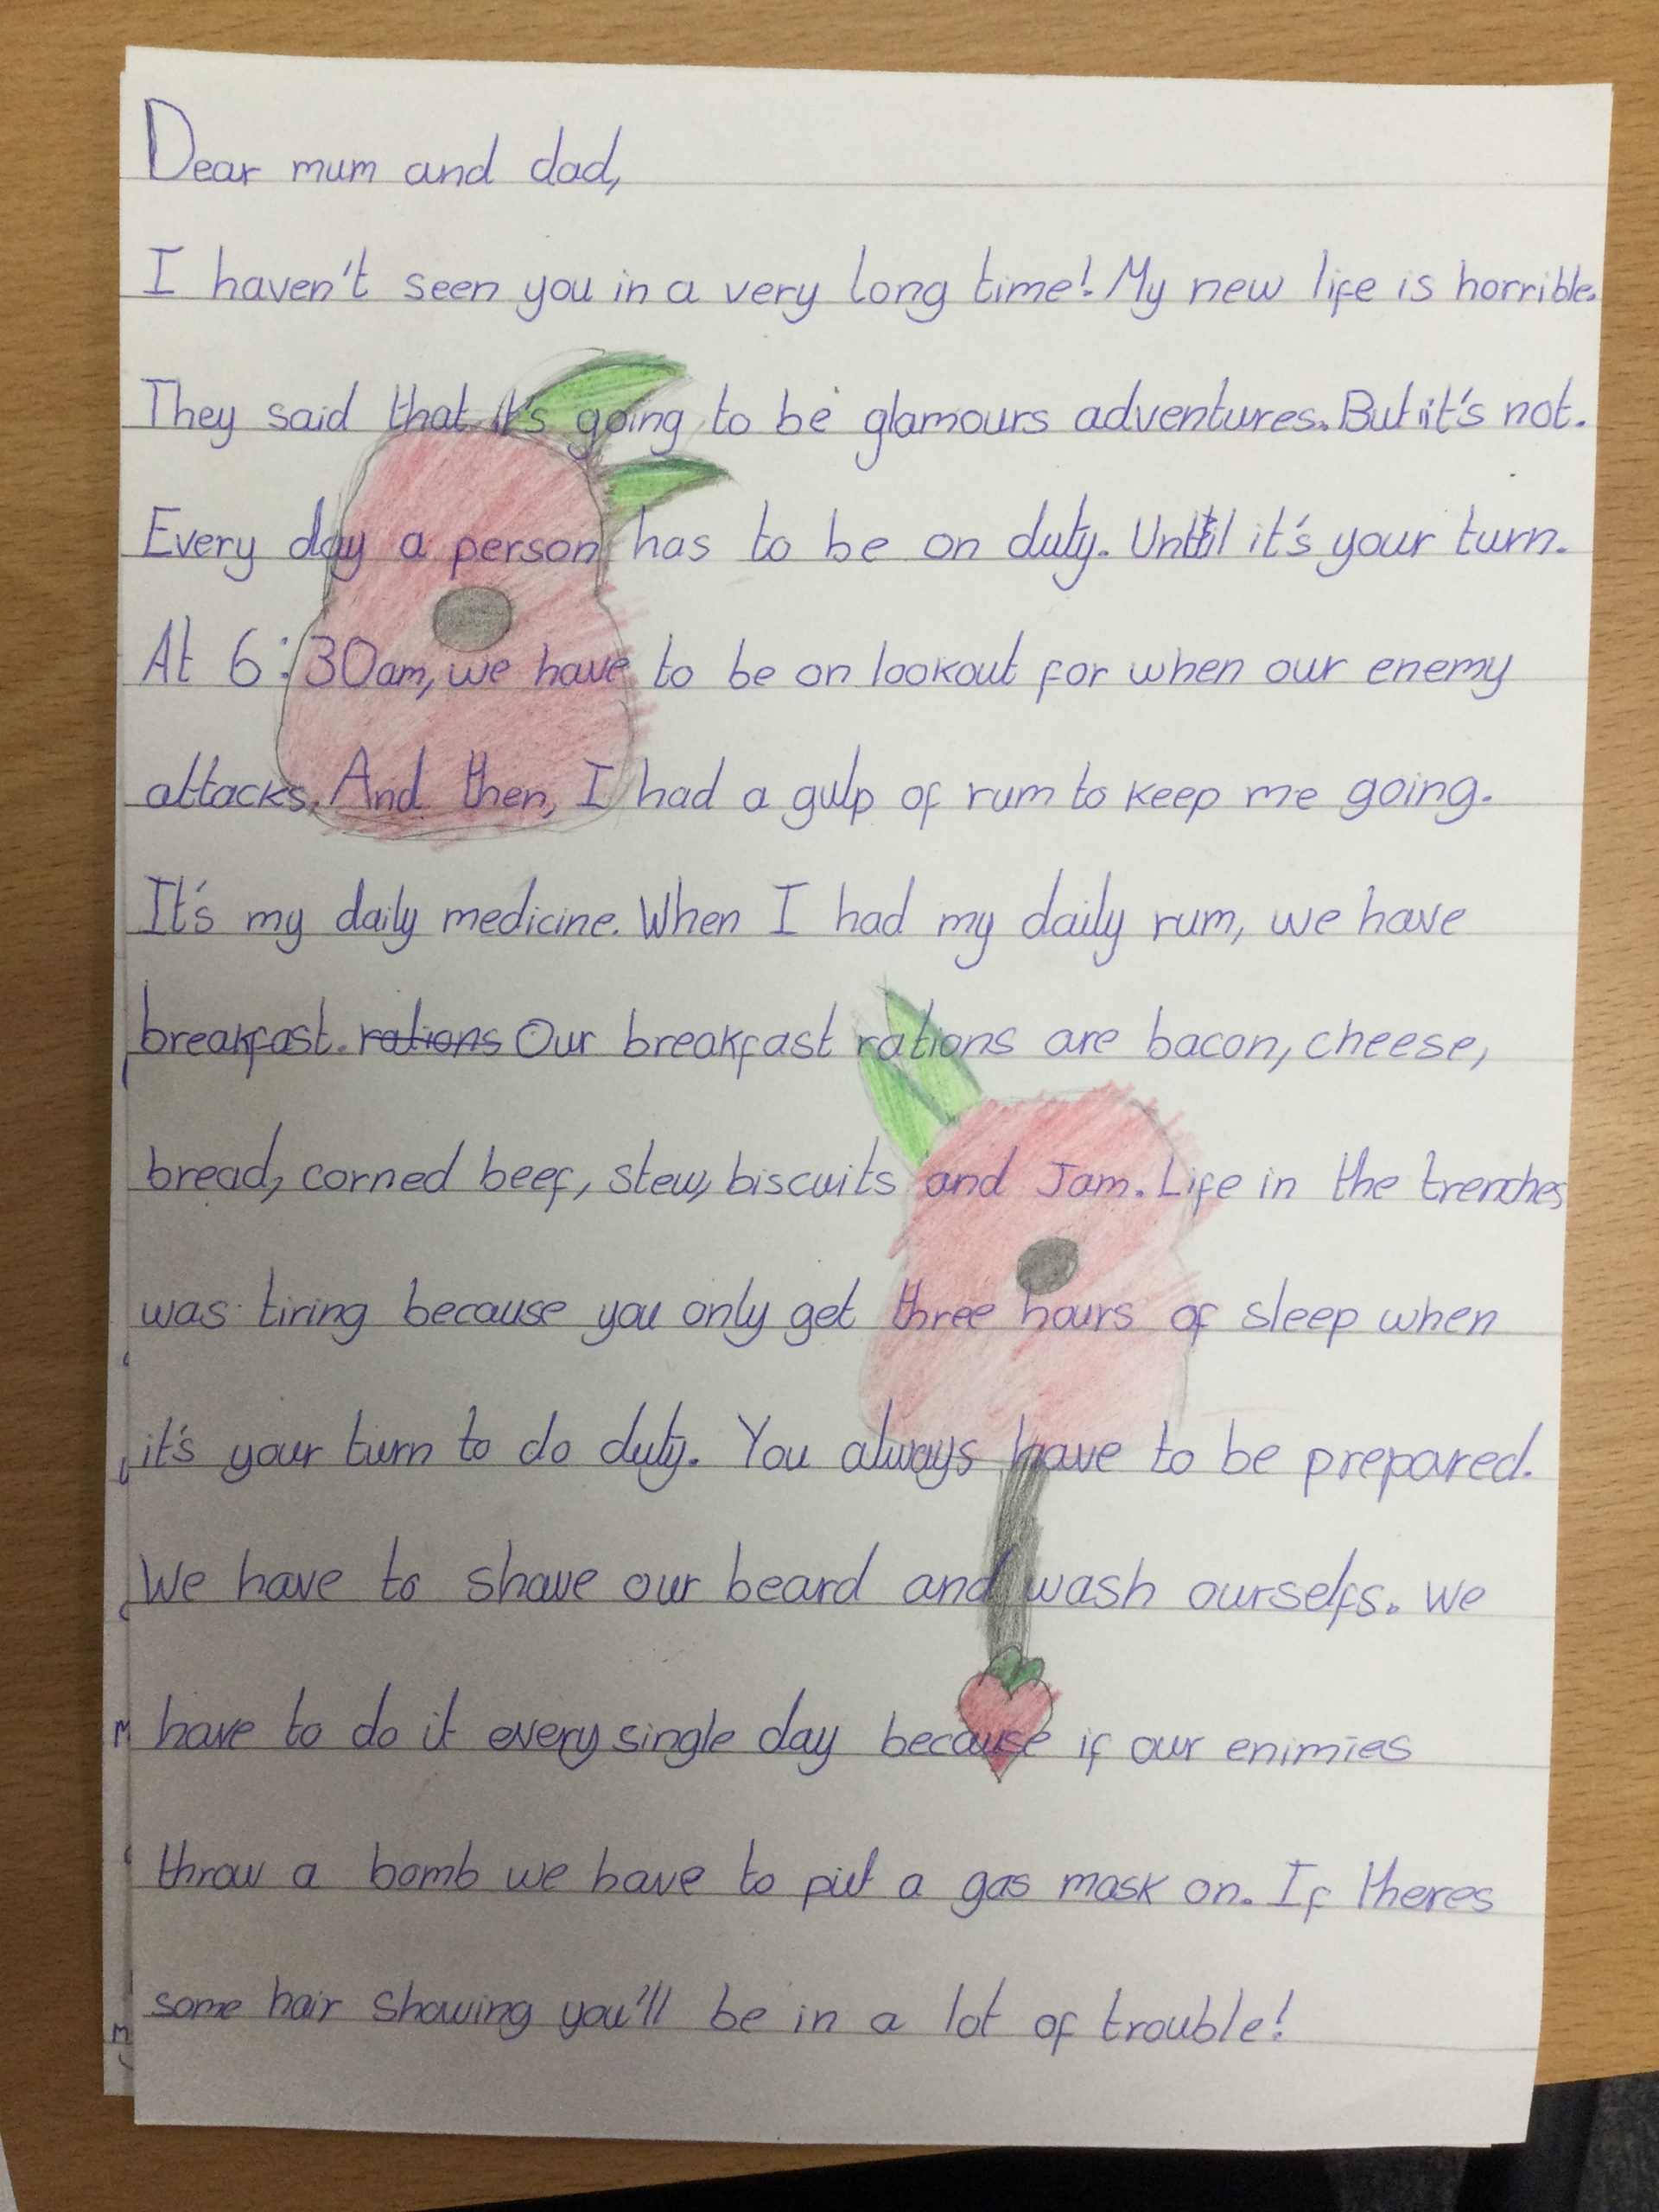 Dear mum and dad,
I haven't seen you in a very long time! My new life is horrible.
They said that it's going to be glamours adventures. But it's not.
Every day a person has to be on duty. Until it's your turn.
At 6:30am, we have to be on lookout for when our enemy
attacks. And then, I had a gulp of rum to keep me going.
It's my daily medicine. When I had my daily rum, we have
breakfast. rations Our breakfast rations are bacon, cheese,
bread, corned beef, stew, biscuits and Jam. Life in the trenches
was tiring because you only get three hours of sleep when
it's your turn to do duty. You always have to be prepared.
We have to shave our beard and wash ourselfs. We
have to do it every single day because if our enimies
throw a bomb we have to put a gas mask on. If theres
some hair showing you'll be in a lot of trouble!